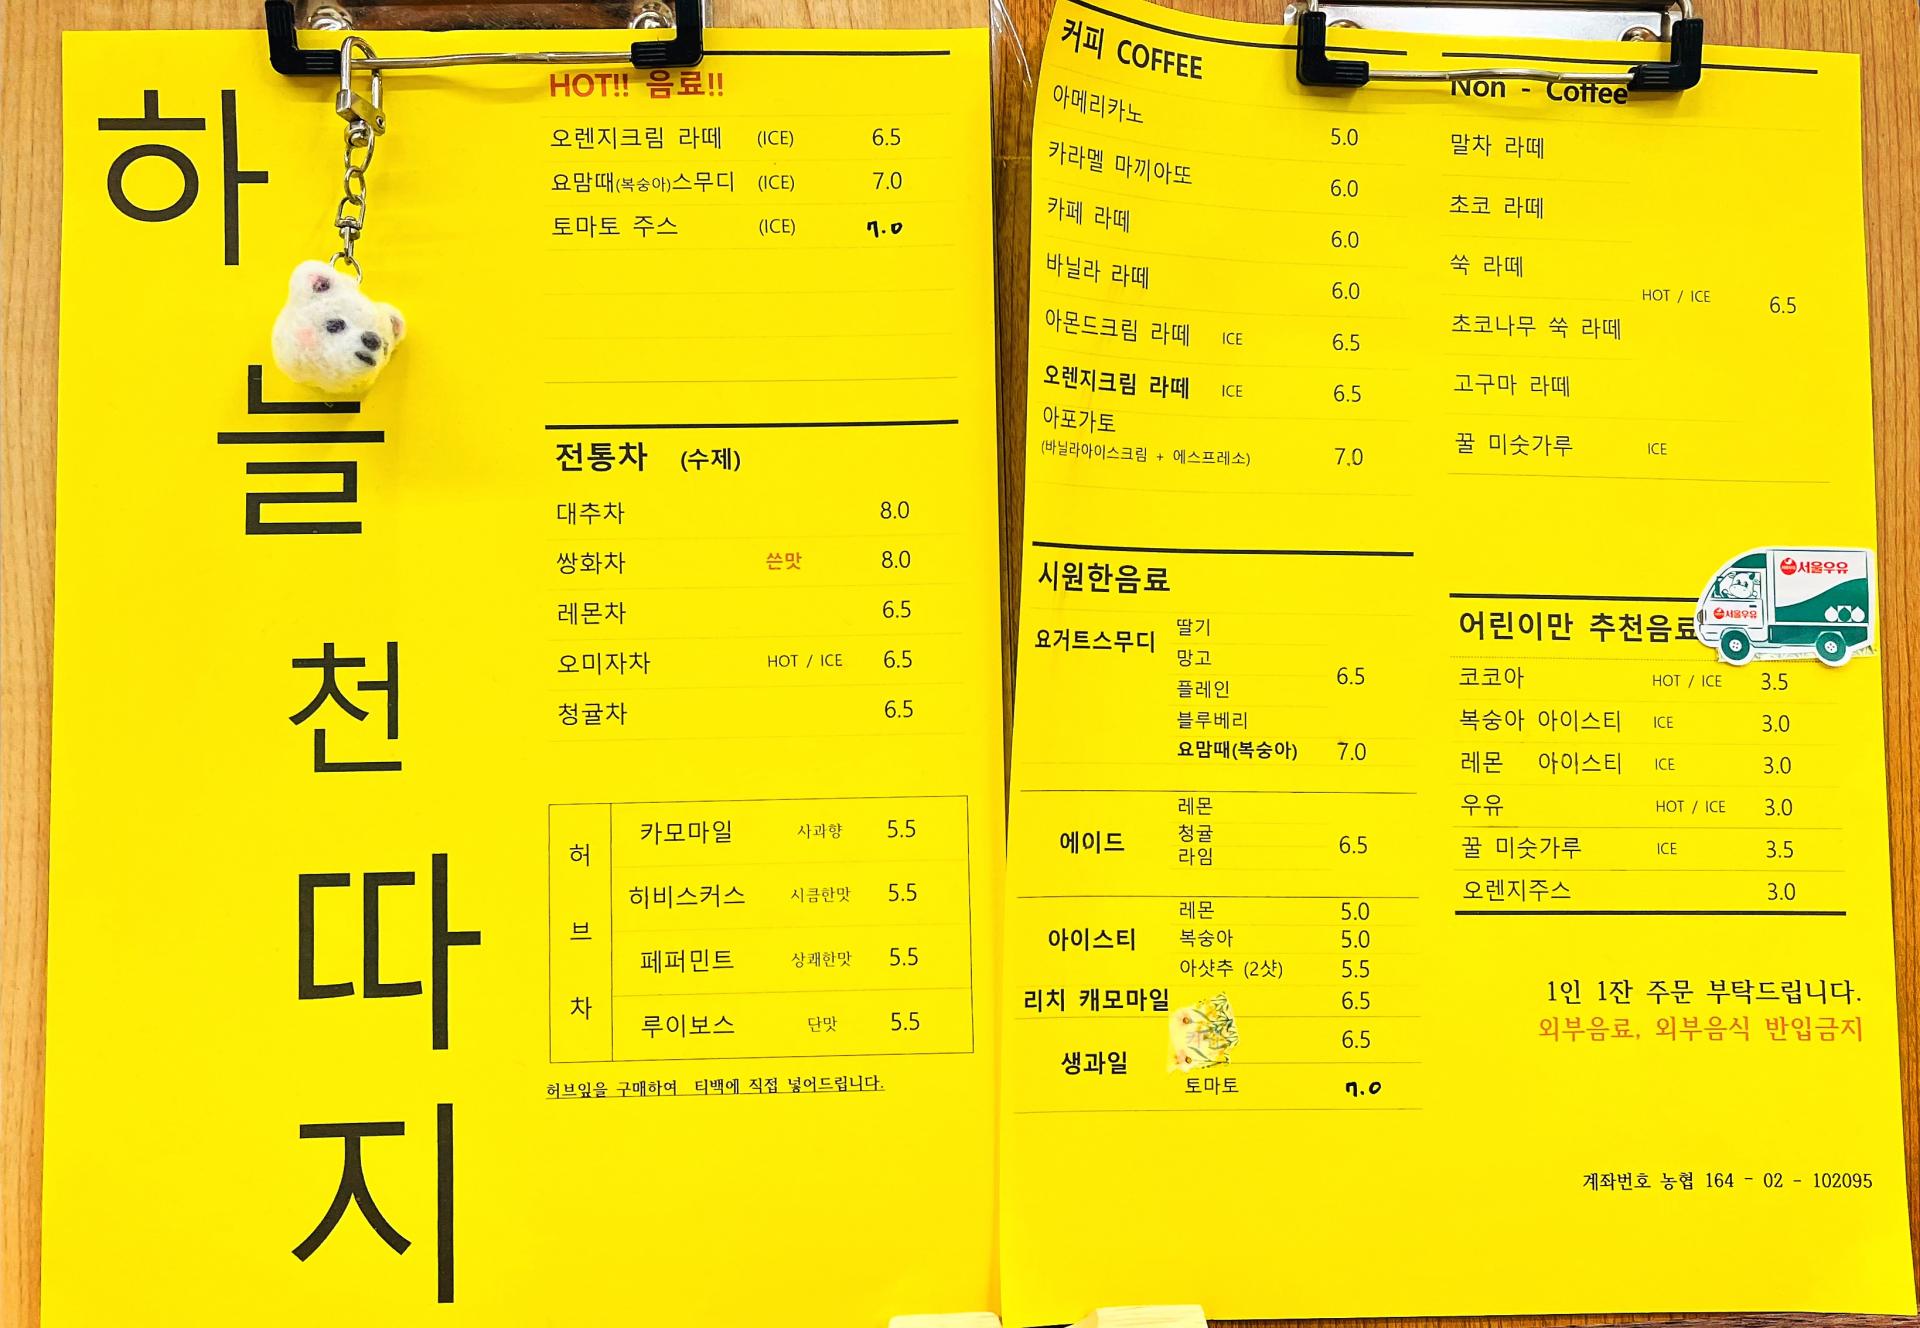 하
늘
천
따
지
HOT!! 음료!!
오렌지크림 라떼 (ICE) 6.5
요맘때(복숭아)스무디 (ICE) 7.0
토마토 주스 (ICE) 7.0
전통차 (수제)
대추차 8.0
쌍화차 쓴맛 8.0
레몬차 6.5
오미자차 HOT / ICE 6.5
청귤차 6.5
허브차
카모마일 사과향 5.5
히비스커스 시큼한맛 5.5
페퍼민트 상쾌한맛 5.5
루이보스 단맛 5.5
허브잎을 구매하여 티백에 직접 넣어드립니다.
커피 COFFEE
아메리카노 5.0
카라멜 마끼아또 6.0
카페 라떼 6.0
바닐라 라떼 6.0
아몬드크림 라떼 ICE 6.5
오렌지크림 라떼 ICE 6.5
아포가토
(바닐라아이스크림 + 에스프레소) 7.0
시원한음료
요거트스무디
딸기
망고
플레인
블루베리
6.5
요맘때(복숭아) 7.0
에이드
레몬
청귤
라임
6.5
아이스티
레몬 5.0
복숭아 5.0
아샷추 (2샷) 5.5
리치 캐모마일 6.5
생과일
6.5
토마토 7.0
Non - Coffee
말차 라떼
초코 라떼
쑥 라떼
HOT / ICE 6.5
초코나무 쑥 라떼
고구마 라떼
꿀 미숫가루 ICE
서울우유
서울우유
어린이만 추천음료
코코아 HOT / ICE 3.5
복숭아 아이스티 ICE 3.0
레몬 아이스티 ICE 3.0
우유 HOT / ICE 3.0
꿀 미숫가루 ICE 3.5
오렌지주스 3.0
1인 1잔 주문 부탁드립니다.
외부음료, 외부음식 반입금지
계좌번호 농협 164 - 02 - 102095